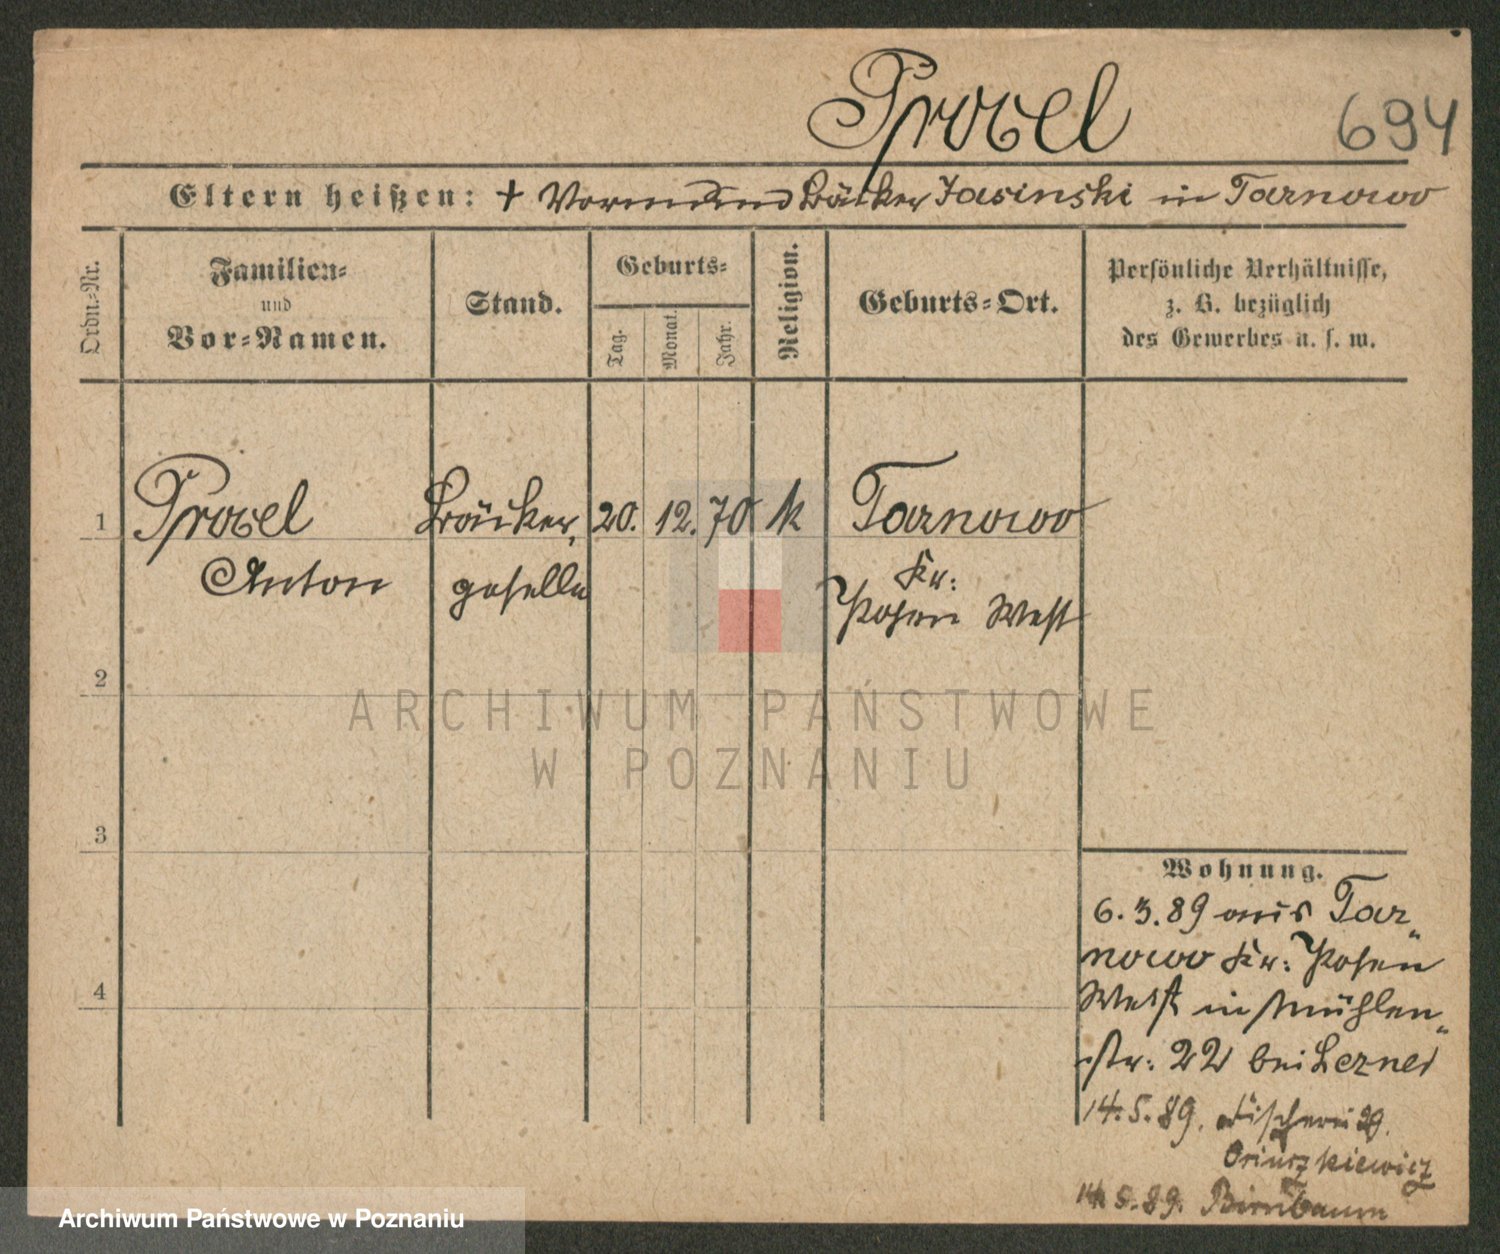 Provel
694
Eltern heißen: + Vormund Bäcker Jasinski in Tarnowo
Ordn.-Nr.
Familien-
und
Vor-Namen.
Stand.
Geburts-
Tag.
Monat.
Jahr.
Religion.
Geburts-Ort.
Persönliche Verhältnisse,
z. B. bezüglich
des Gewerbes u. s. w.
1 Provel Bäcker, 20. 12. 70 k Tarnowo
Anton geselle Kr:
Posen West
2
ARCHIWUM PAŃSTWOWE
W POZNANIU
3
Wohnung.
6. 3. 89 aus Tar„
nowo Kr: Posen
4
West in Mühlen„
str: 22 bei
14. 5. 89. Fischerei 29.
14. 5. 89. Birnbaum
Archiwum Państwowe w Poznaniu